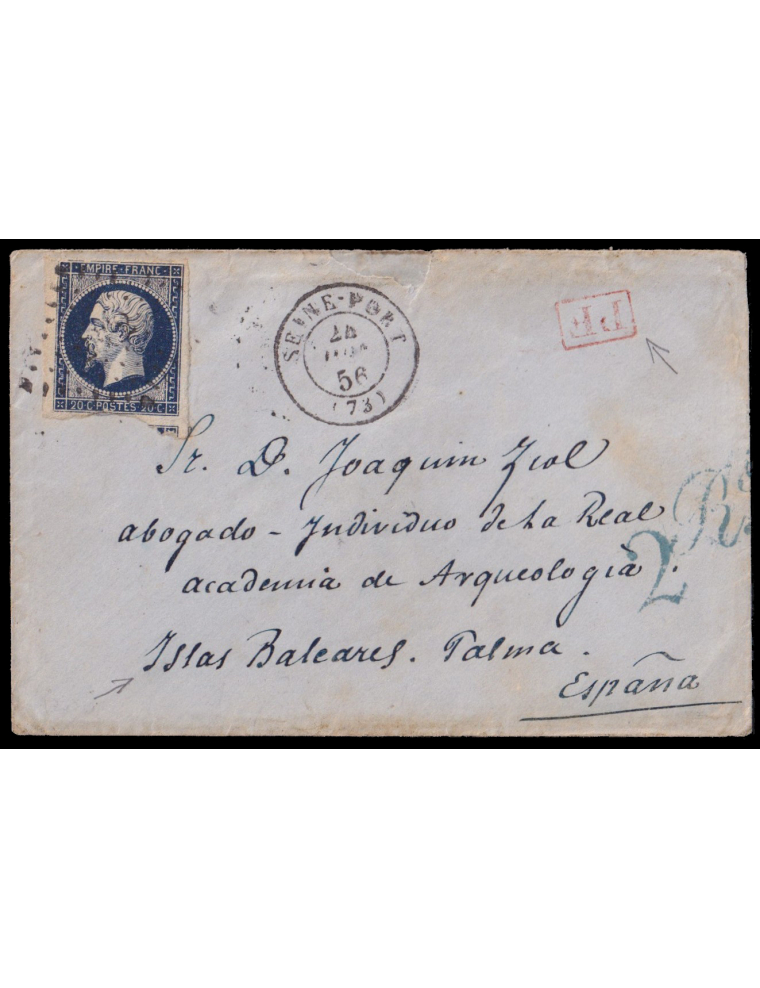 EMPIRE FRANC
20 C POSTES 20 C
SEINE-PORT
56
(73)
PF
Sr. D. Joaquim Fiol
abogado - Individuo de la Real
academia de Arqueologia.
Islas Baleares. Palma.
España
2 Rs